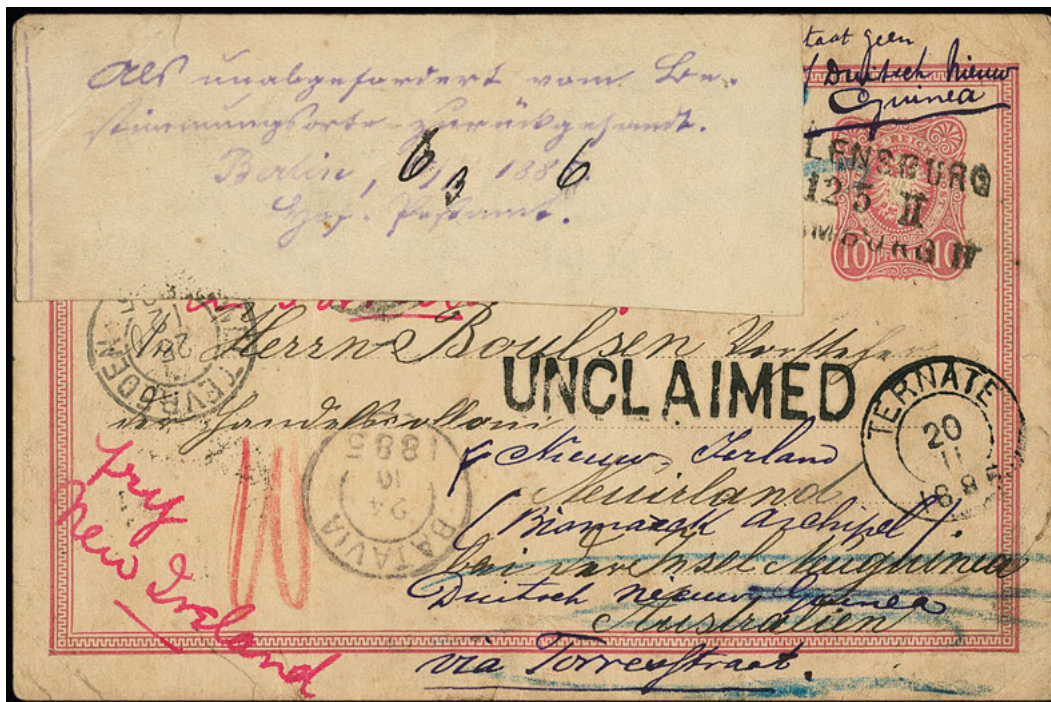 Als unabgefordert vom Be-
stimmungsorte zurückgesandt.
Berlin, 6/3 1886
Hof-Postamt.
taat geen
Duitsch Nieuw
Guinea
LENSBURG
12 5 II
MBURG II
REICHS
10 PFENNIG 10
An Herrn Boulsen Vorsteher
der Handelskolloni
UNCLAIMED
TERNATE
20
11
188
TEVREDEN
28
12
BATAVIA
24
10
1885
Nieuw Ierland
Neuirland
(Bismarck Archipel)
bei der Insel Neuguinea
Duitsch nieuw Guinea
Australien
via Torresstraat.
try
New Ireland
10